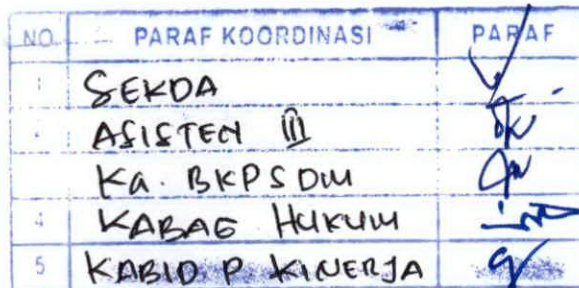 NO. PARAF KOORDINASI PARAF
1 SEKDA
2 ASISTEN III
Ka. BKPSDM
4 KABAG HUKUM
5 KABID P. KINERJA